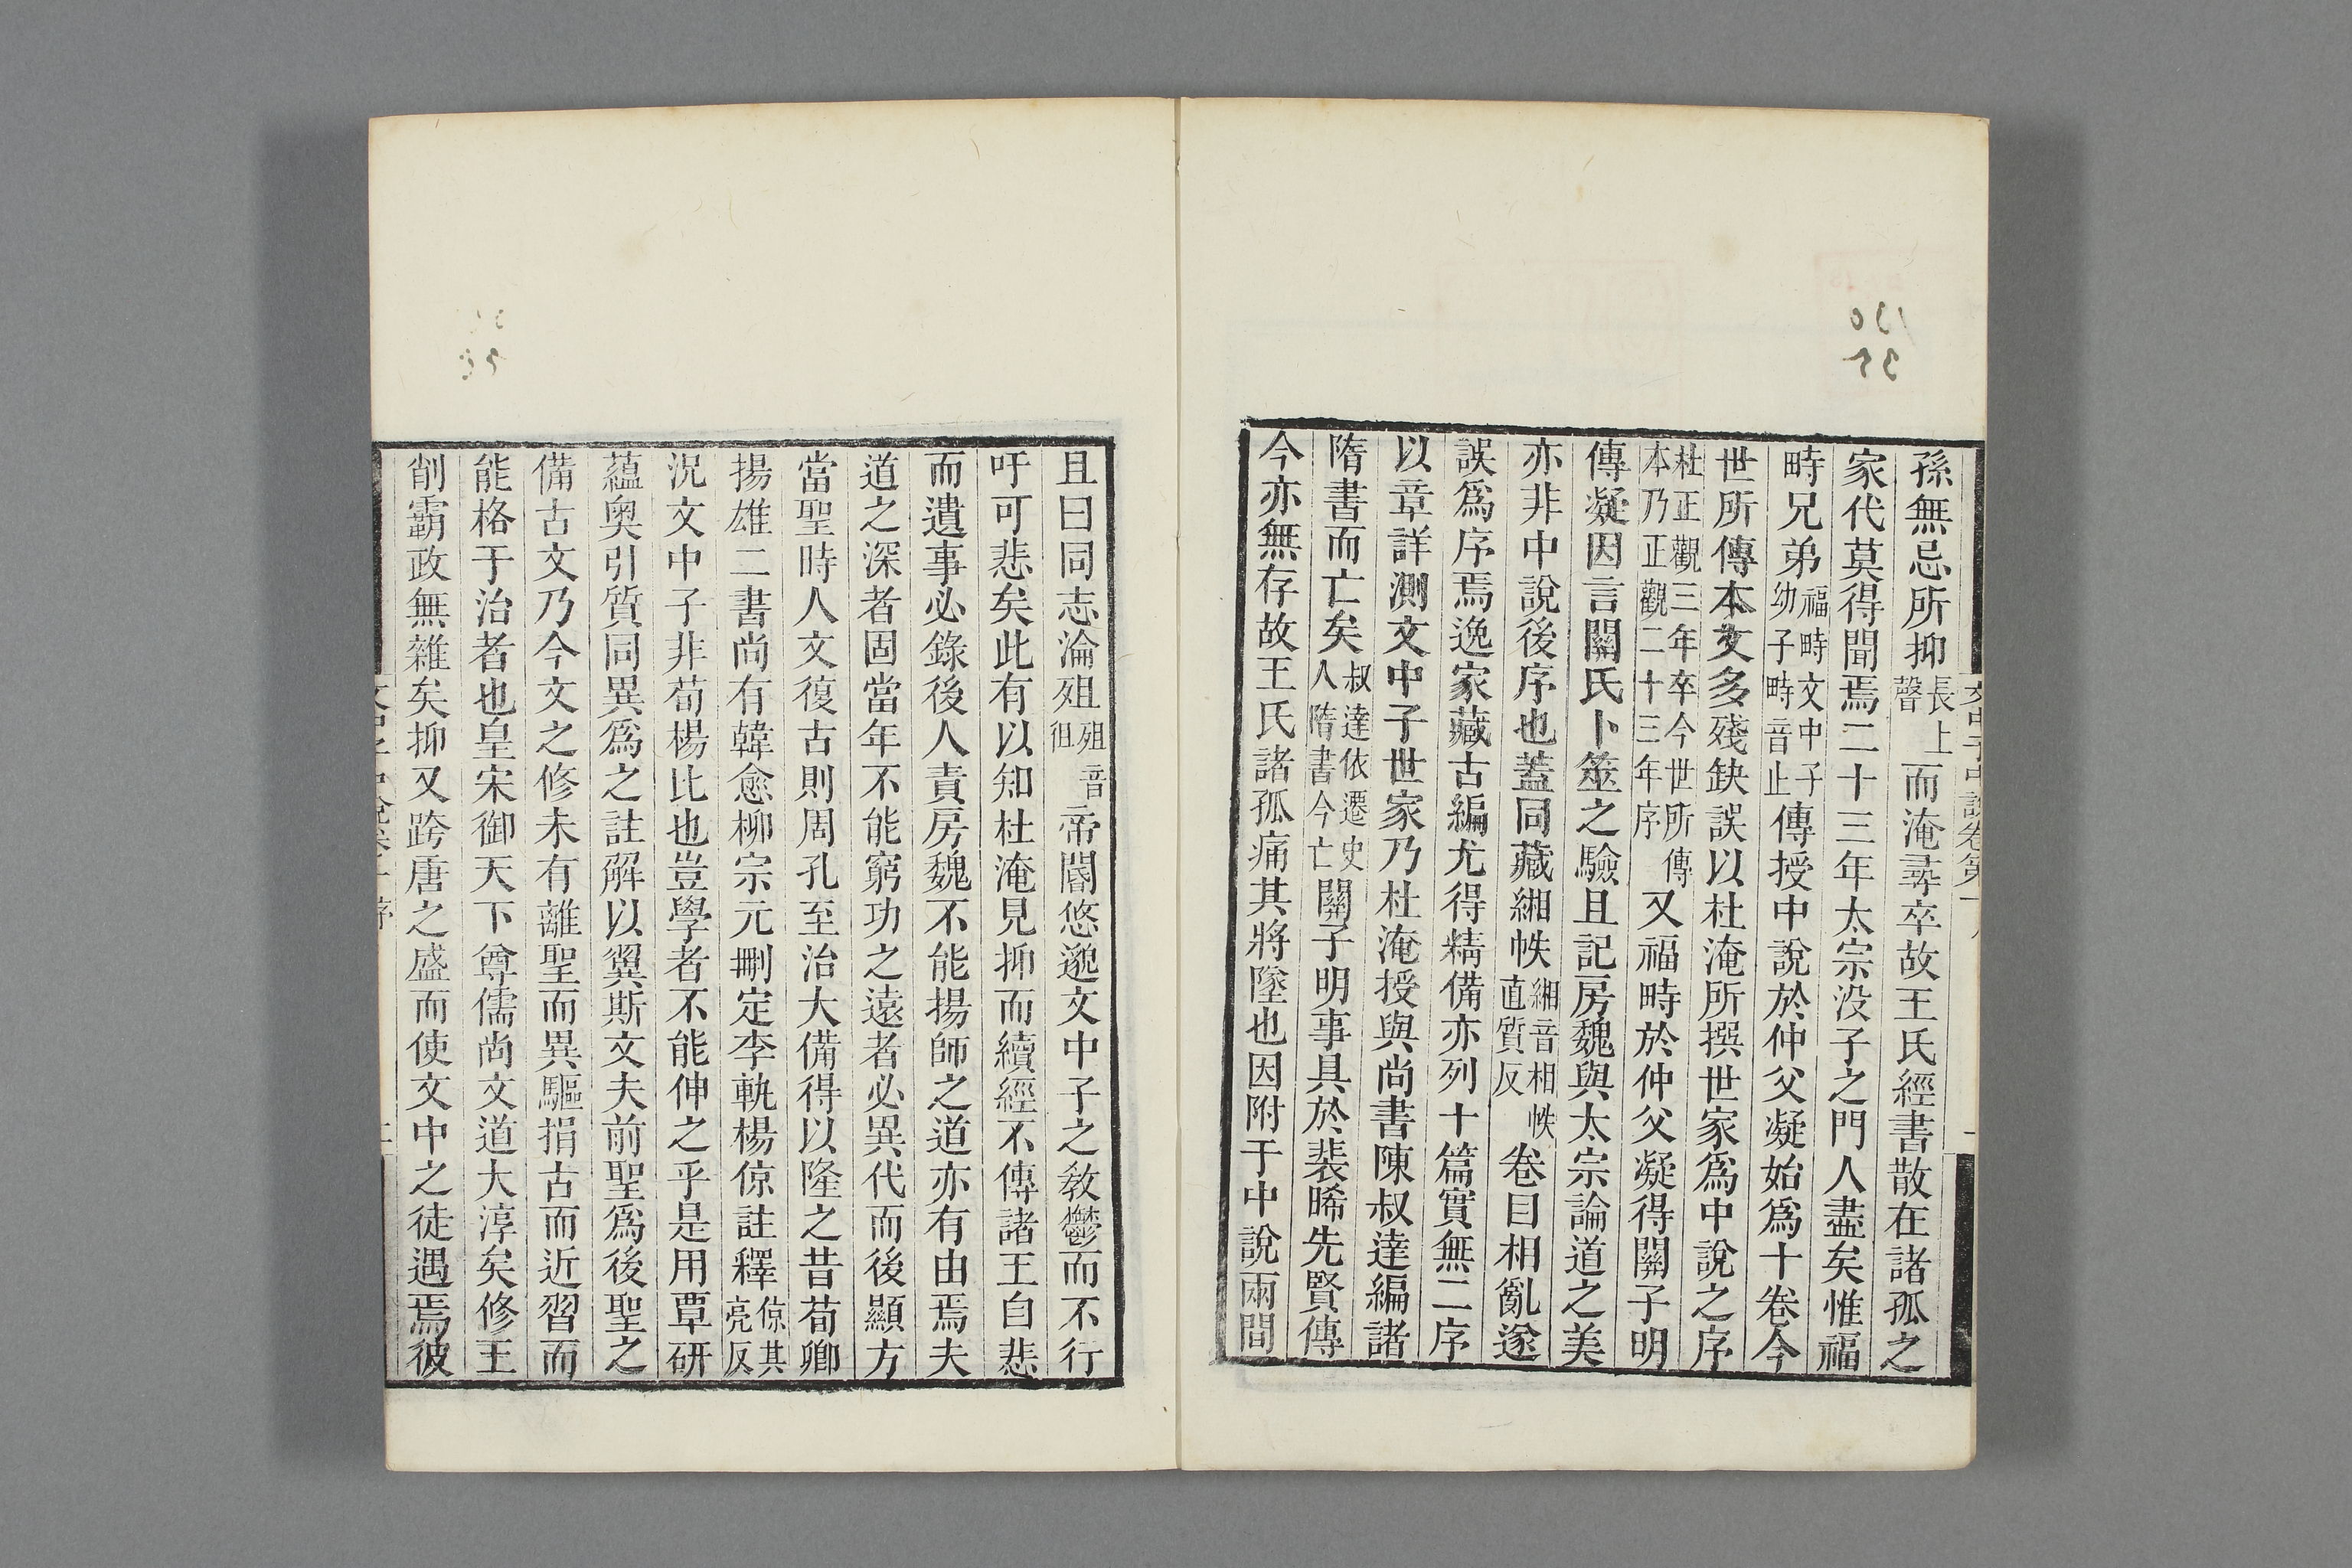 孫無忌所抑長上聲而淹尋卒故王氏經書散在諸孤之
家代莫得聞焉二十三年太宗没子之門人盡矣惟福
畤兄弟福畤文中子幼子畤音止傳授中說於仲父凝始爲十卷今
世所傳本文多殘缺誤以杜淹所撰世家爲中說之序
杜正觀三年卒今世所傳本乃正觀二十三年序又福畤於仲父凝得關子明
傳凝因言關氏卜筮之驗且記房魏與太宗論道之美
亦非中說後序也蓋同藏緗帙緗音相帙直質反卷目相亂遂
誤爲序焉逸家藏古編尤得精備亦列十篇實無二序
以章詳測文中子世家乃杜淹授與尚書陳叔達編諸
隋書而亡矣叔達依遷史人隋書今亡關子明事具於裴晞先賢傳
今亦無存故王氏諸孤痛其將墜也因附于中說兩間
且曰同志淪殂殂音徂帝閽悠邈文中子之敎鬱而不行
吁可悲矣此有以知杜淹見抑而續經不傳諸王自悲
而遺事必錄後人責房魏不能揚師之道亦有由焉夫
道之深者固當年不能窮功之遠者必異代而後顯方
當聖時人文復古則周孔至治大備得以隆之昔荀卿
揚雄二書尚有韓愈柳宗元刪定李軌楊倞註釋倞其亮反
況文中子非荀楊比也豈學者不能伸之乎是用覃研
蘊奧引質同異爲之註解以翼斯文夫前聖爲後聖之
備古文乃今文之修未有離聖而異驅捐古而近習而
能格于治者也皇宋御天下尊儒尚文道大淳矣修王
削霸政無雜矣抑又跨唐之盛而使文中之徒遇焉彼